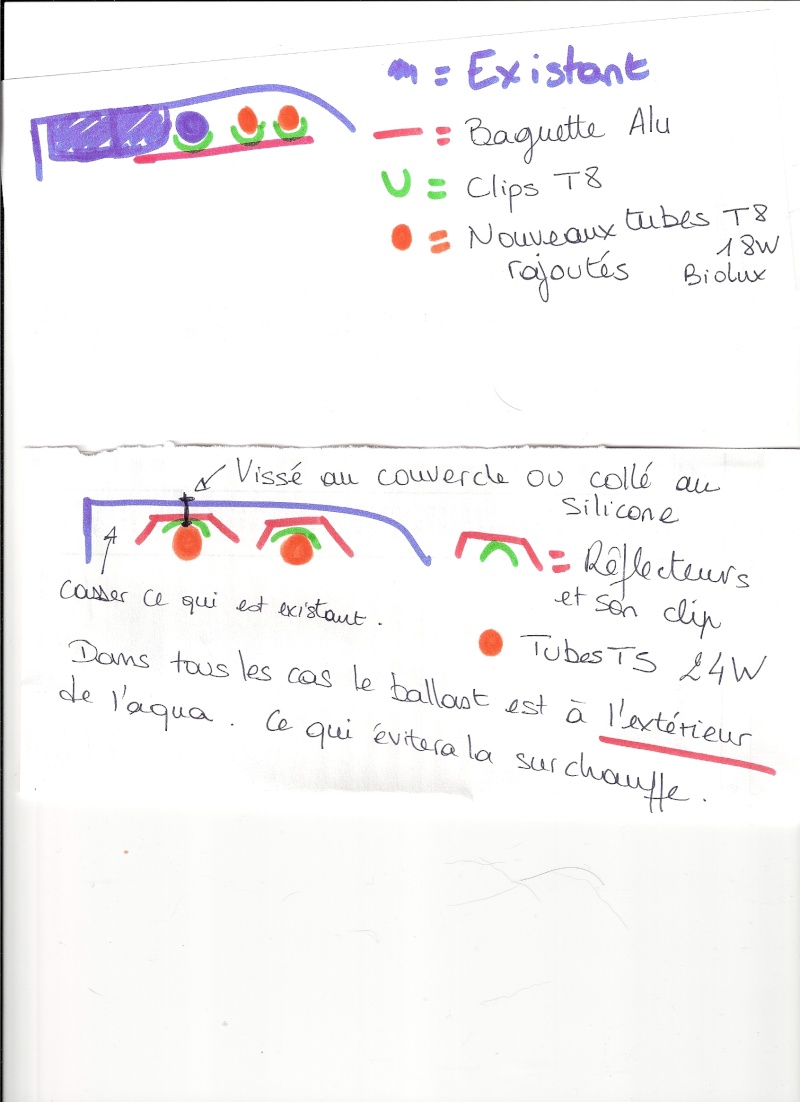 = Existant
= Baguette Alu
= Clips T8
= Nouveaux tubes T8
18W
rajoutés Biolux
Vissé au couvercle ou collé au
Silicone
= Réflecteurs
et son clip
casser ce qui est existant.
Tubes T5 24W
Dans tous les cas le ballast est à l'extérieur
de l'aqua. Ce qui évitera la surchauffe.